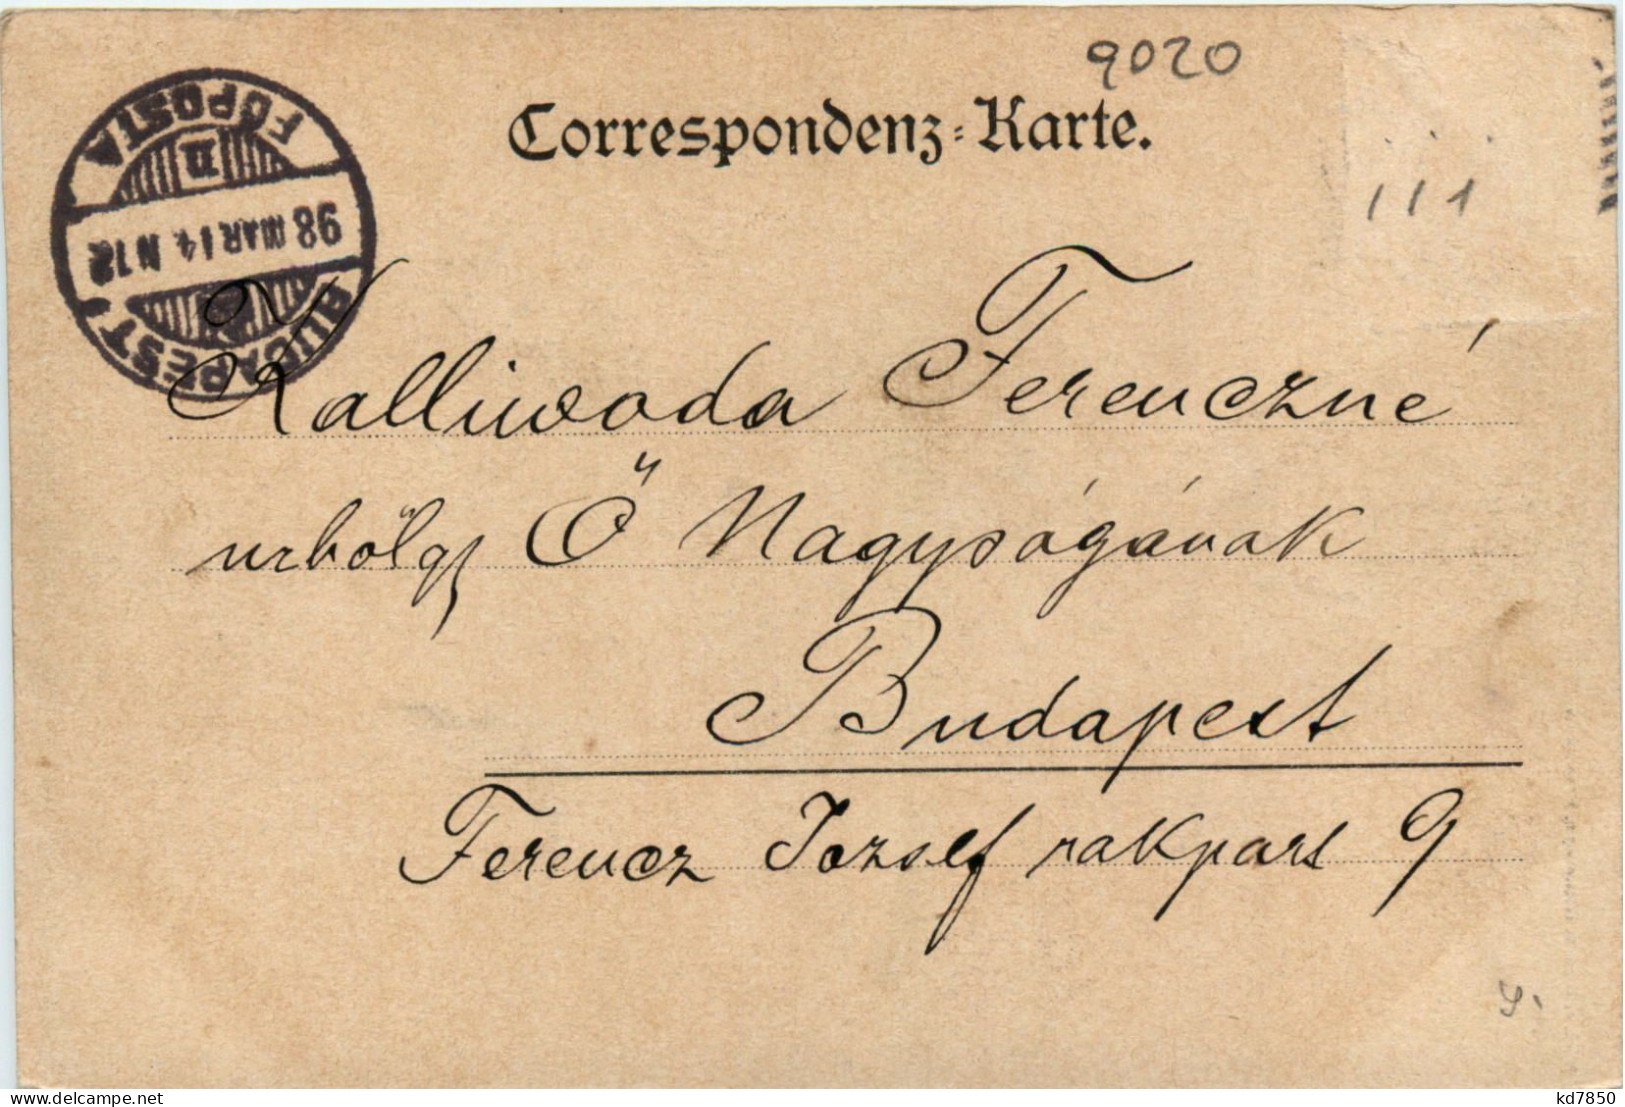 9020
Correspondenz-Karte.
BUDAPEST
98 MAR 14 N 12
FŐPOSTA
111
Kalliwoda Ferenczné
urhölgy Ő Nagyságának
Budapest
Ferencz József rakpart 9
kd7850